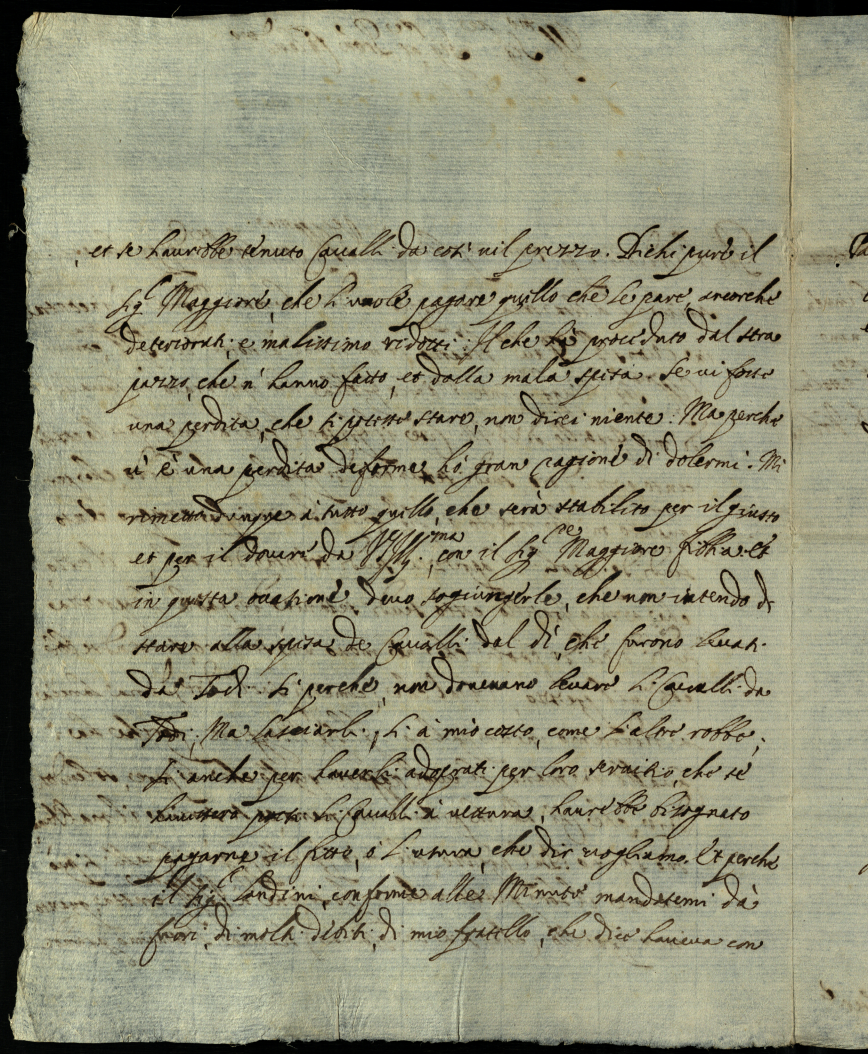 et se haurebbe tenuto Cavalli da così vil prezzo. Dichi pure il
Sig.r Maggiore, che li vuole pagare quello che le pare, ancorche
deteriorati, e malissimo ridotti. Il che hà proceduto dal stra
pazzo, che n' hanno fatto, et dalla mala spesa. Se vi fosse
una perdita, che si potesse stare, non direi niente. Ma perche
v' è una perdita deforme, hò gran cagione di dolermi. Mi
rimetto dunque à tutto quello, che serà stabilito per il giusto
et per il dovere da V.S. Ill.ma, con il Sig.re Maggiore Et
in questa devo sogiungerle, che non intendo di
stare alla spesa de Cavalli dal dì, che furono levati
da Todi. Sì perche, non dovevano levare li Cavalli da
Todi, Ma lasciarli, lì à mio costo, come l'altre robbe,
Sì anche per haverli adoprati per loro servitio che se
havessero presi li Cavalli à vettura, haurebbe bisognato
pagarne il fitto, ò l'usura, che dir vogliamo. Et perche
il Sig.r Landini, conforme alle Minute mandatemi dà
fuori, di molti debiti, di mio fratello, che dice haveva con